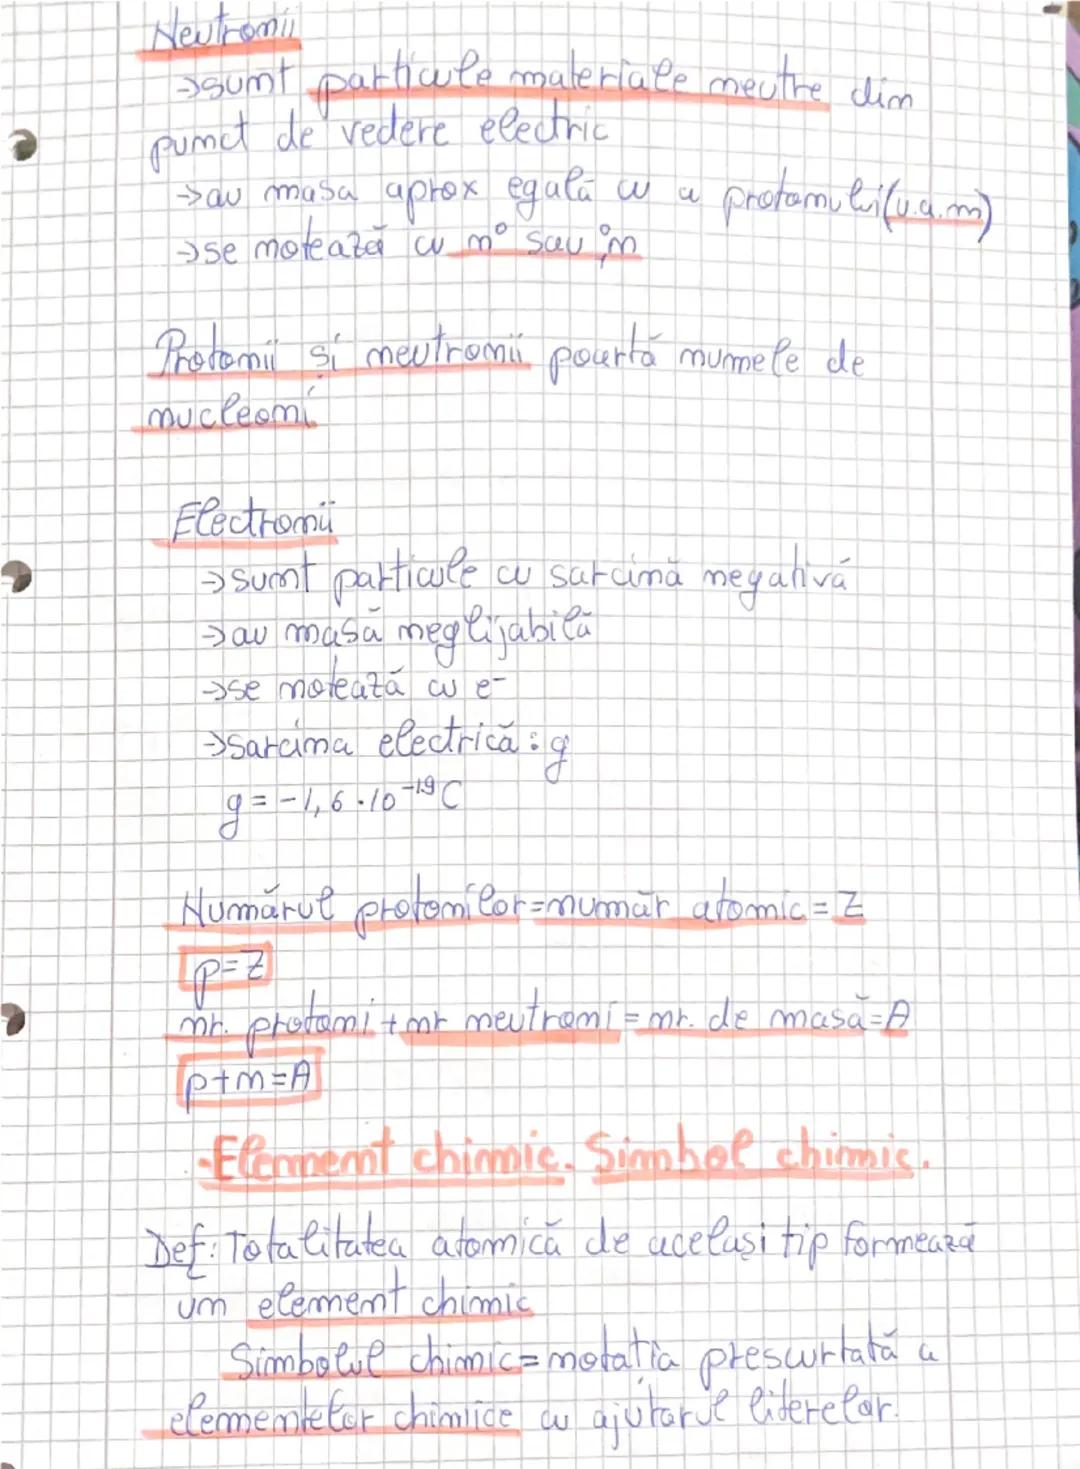 Neutronii
→sunt particule materiale neutre din
punct de vedere electric
→au masa aprox egală cu a protonului(u.a.m)
→se notează cu n° sau ⁰₁n
Protonii și neutronii poartă numele de
nucleoni
Electronii
→sunt particule cu sarcină negativă
→au masă neglijabilă
→se notează cu e⁻
→sarcina electrică: q
q = -1,6 · 10⁻¹⁹ C
Numărul protonilor=număr atomic = Z
p=Z
nr. protoni + nr neutroni = nr. de masă = A
p+n=A
·Element chimic. Simbol chimic.
Def: Totalitatea atomică de același tip formează
un element chimic
Simbolul chimic=notația prescurtată a
elementelor chimice cu ajutorul literelor.